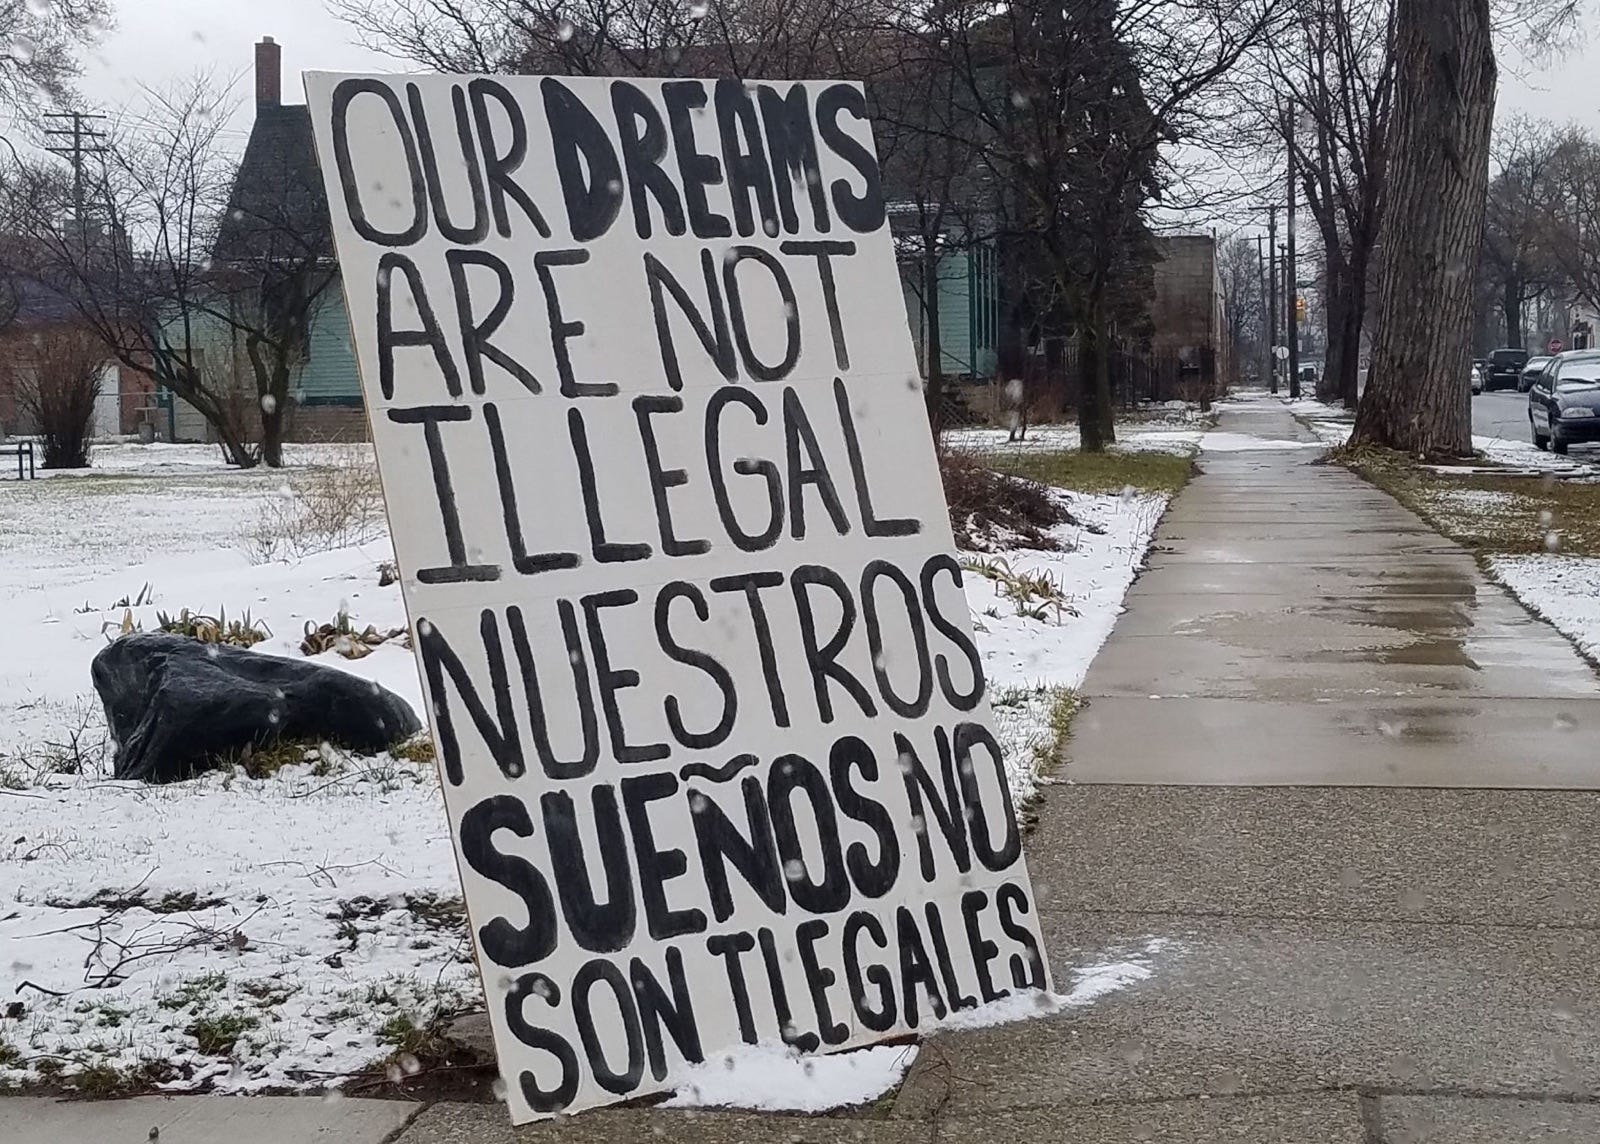 OUR DREAMS
ARE NOT
ILLEGAL
NUESTROS
SUEÑOS NO
SON ILEGALES